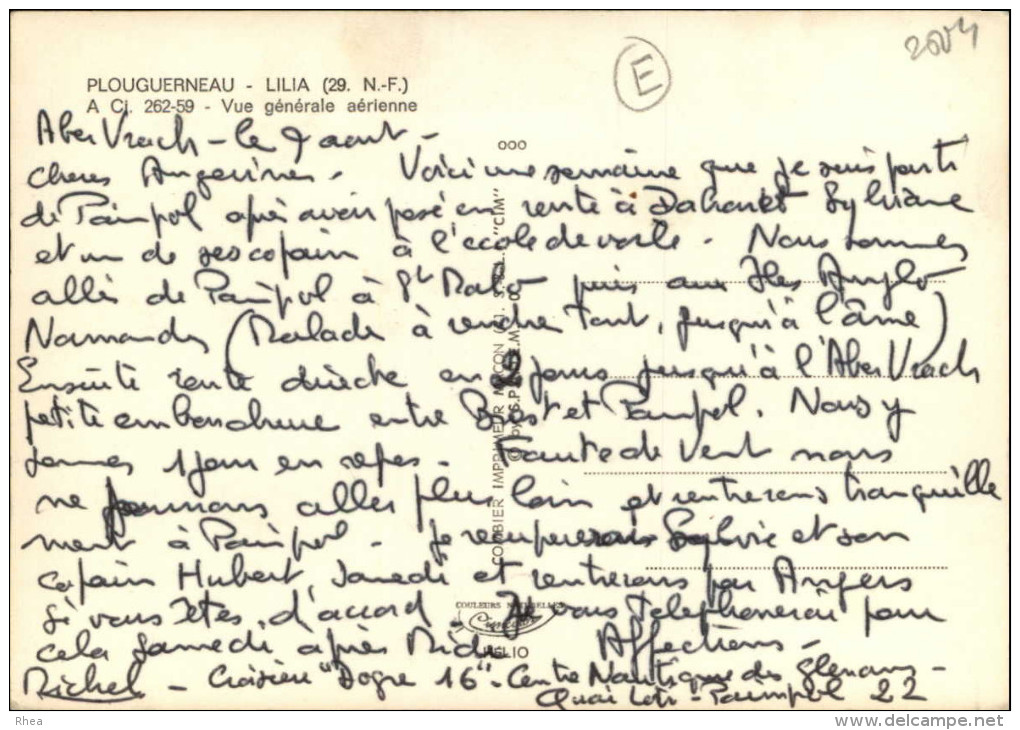 2004
E
PLOUGUERNEAU - LILIA (29. N.-F.)
A Ci. 262-59 - Vue générale aérienne
Aber Vrach - le 9 aout -
cheres Angevines - Voici une semaine que je suis parti
de Paimpol après avoir posé en route à Dahouet Sylviane
et un de ses copain à l'école de voile. Nous sommes
allés de Paimpol à St Malo puis aux Iles Anglo
Normandes (Malade à rendre tout, jusqu'à l'âme)
Ensuite route directe en jours jusqu'à l'Aber Vrach
petite embouchure entre Brest et Paimpol. Nous y
sommes 1 jour en repos. Faute de vent nous
ne pouvons aller plus loin et rentrerons tranquille
ment à Paimpol. Je récupererais Sylvie et son
copain Hubert, Samedi et rentrerons par Angers
si vous êtes d'accord. Je vous telephonerai pour
cela Samedi après Midi Affections -
Michel - Croisière "Dogre 16" - Centre Nautique des Glenans -
Quai Loti - Paimpol 22
000
COMBIER IMPRIMEUR MACON "CIM"
COULEURS NATURELLES
HELIO
Rhea
www.delcampe.net